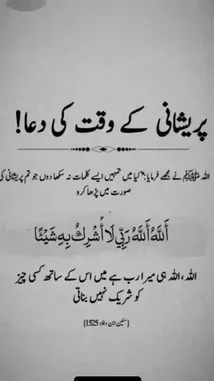 پریشانی کے وقت کی دعا!
اللہ ﷺ نے مجھے فرمایا: "کیا میں تمہیں ایسے کلمات نہ سکھا دوں جو تم پریشانی کی
صورت میں پڑھا کرو
اَللّٰهُ اَللّٰهُ رَبِّيْ لَا أُشْرِكُ بِهٖ شَيْئًا
اللہ، اللہ ہی میرا رب ہے میں اس کے ساتھ کسی چیز
کو شریک نہیں بناتی
(سنن ابن داؤد 1525)